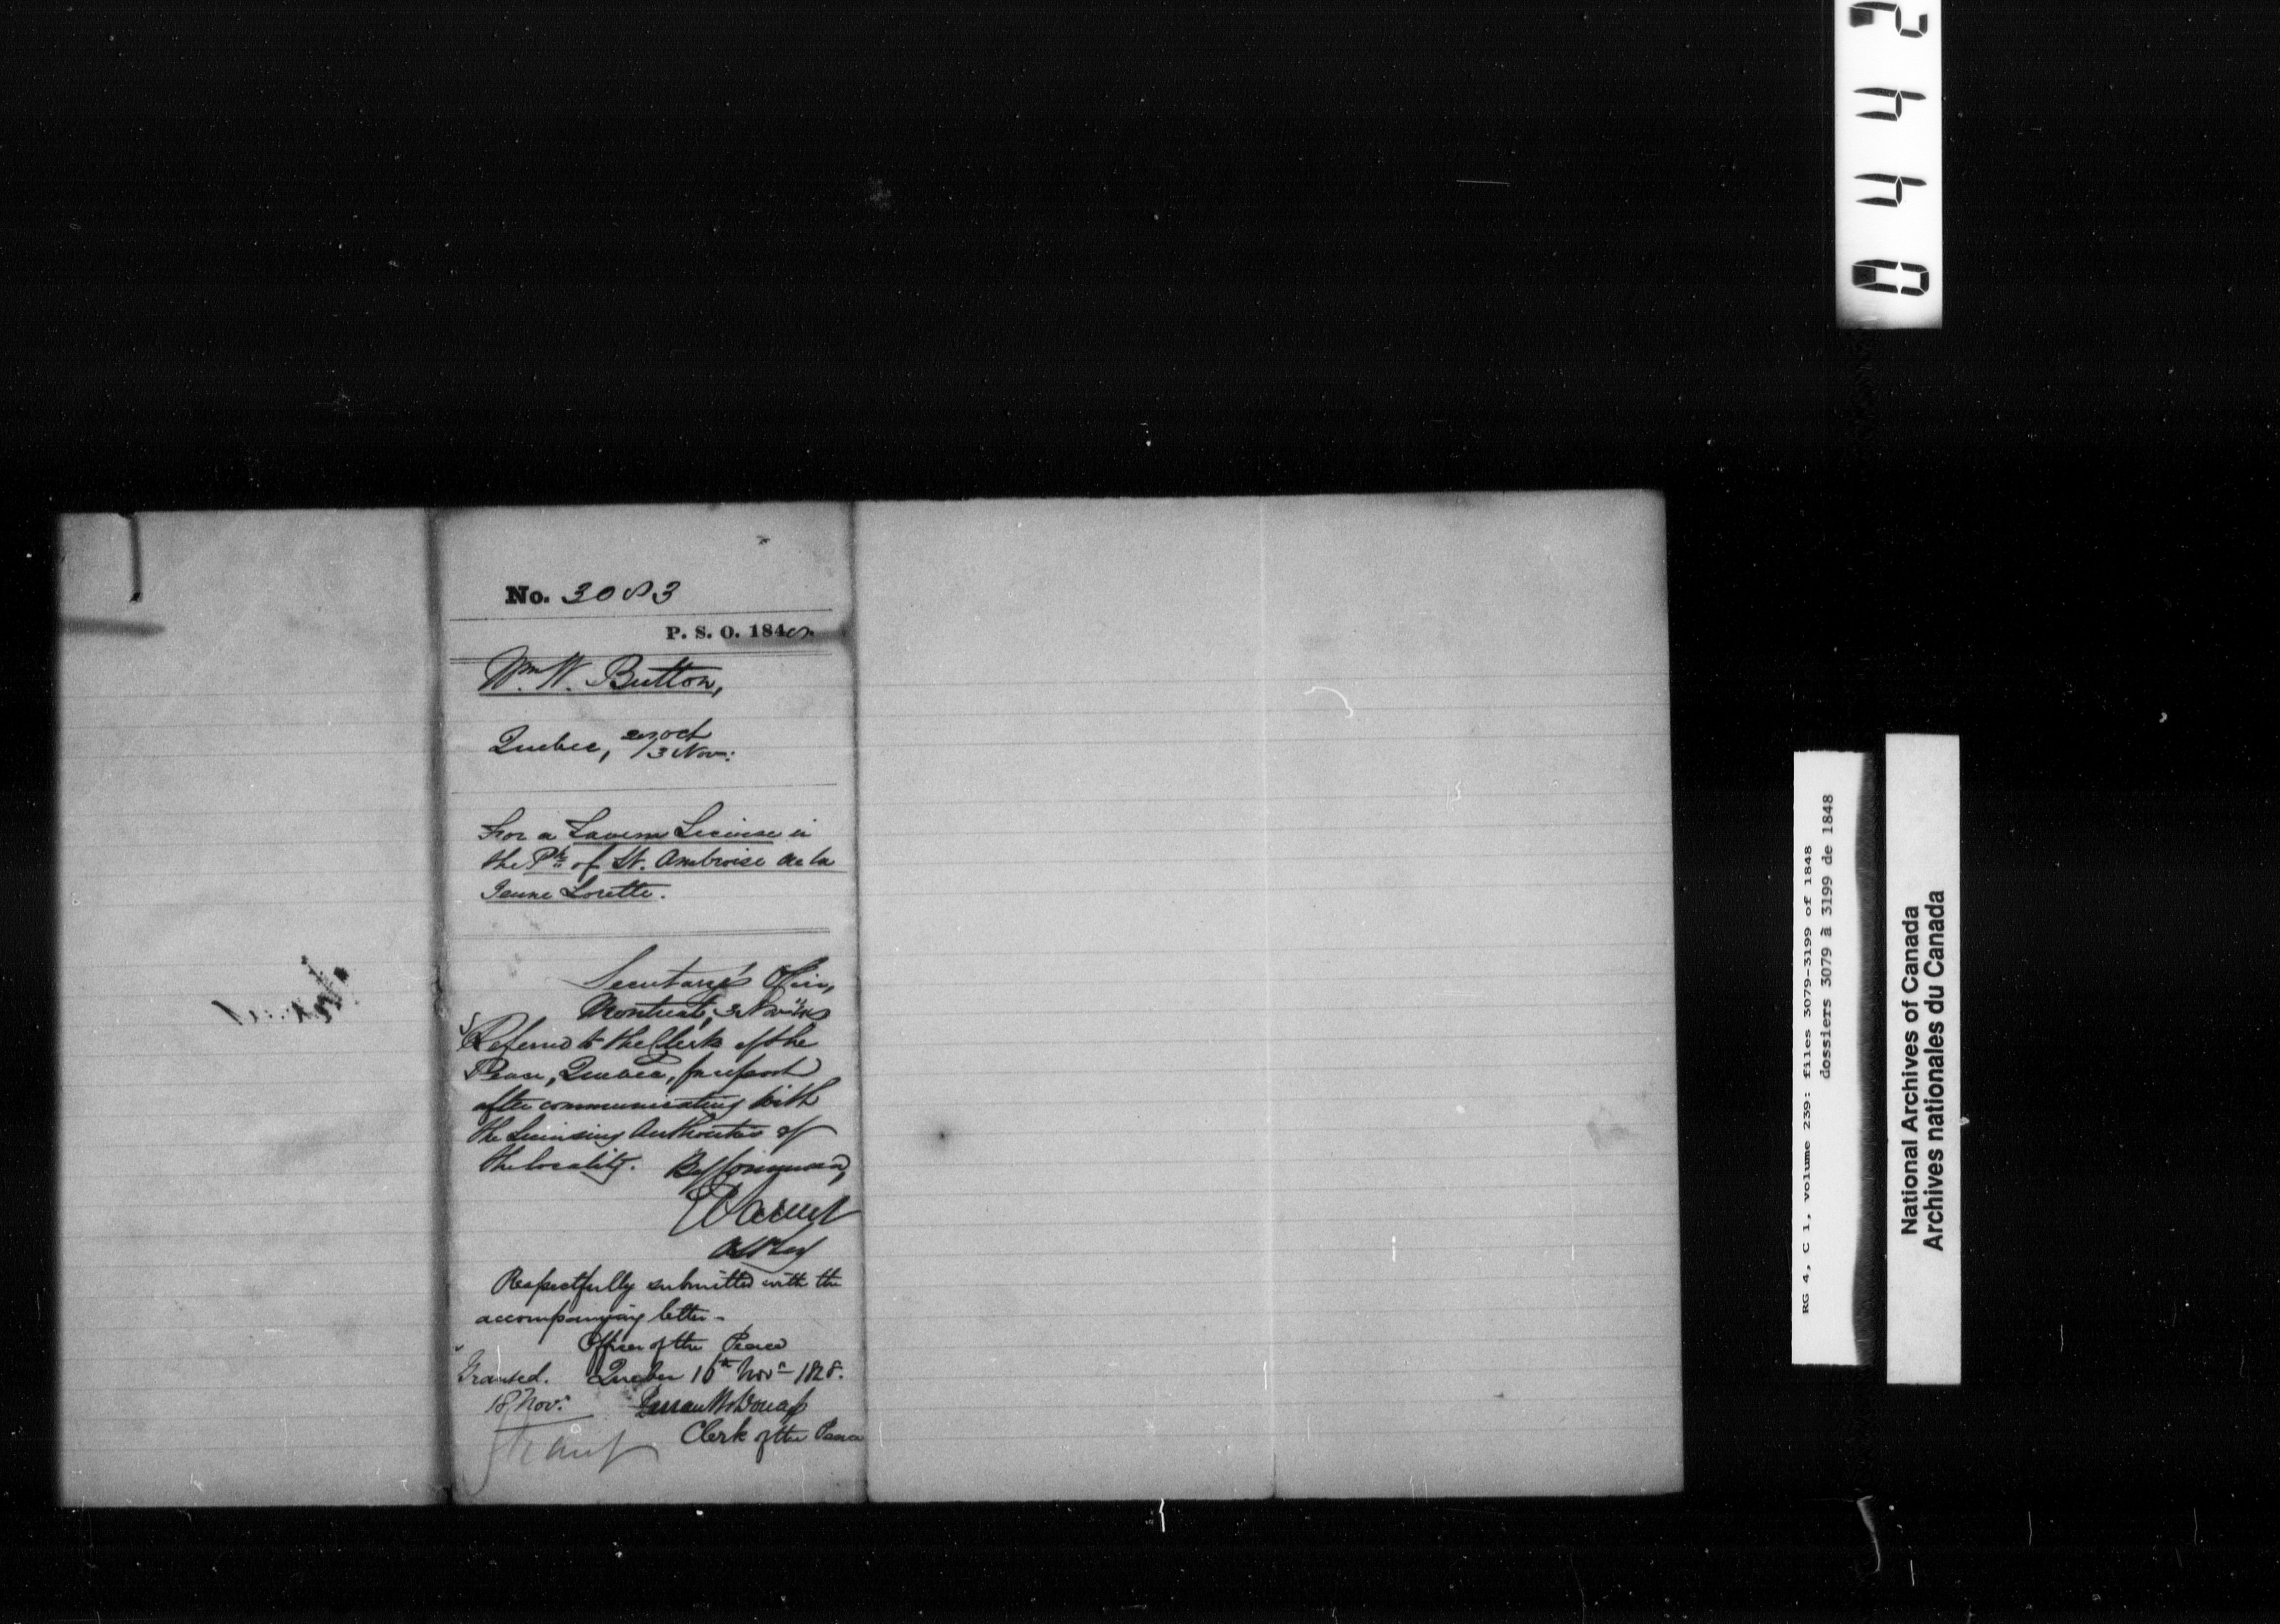 No. 3083
P. S. O. 1848
Wm. W. Button,
Quebec, Oct
/3 Nov:
For a Tavern License in
the Ph. of St. Ambroise de la
Jeune Lorette.
Secretary's Office,
Montreal, 3 Nov
Referred to the Clerk of the
Peace, Quebec, for report
after communicating with
the Licensing Authorities of
the locality. By Command,
Respectfully submitted with the
accompanying letter -
Office of the Peace
Granted. Quebec 16th Novr 1848.
18 Nov:
Clerk of the Peace
2440
RG 4, C 1, volume 239: files 3079-3199 of 1848
dossiers 3079 à 3199 de 1848
National Archives of Canada
Archives nationales du Canada